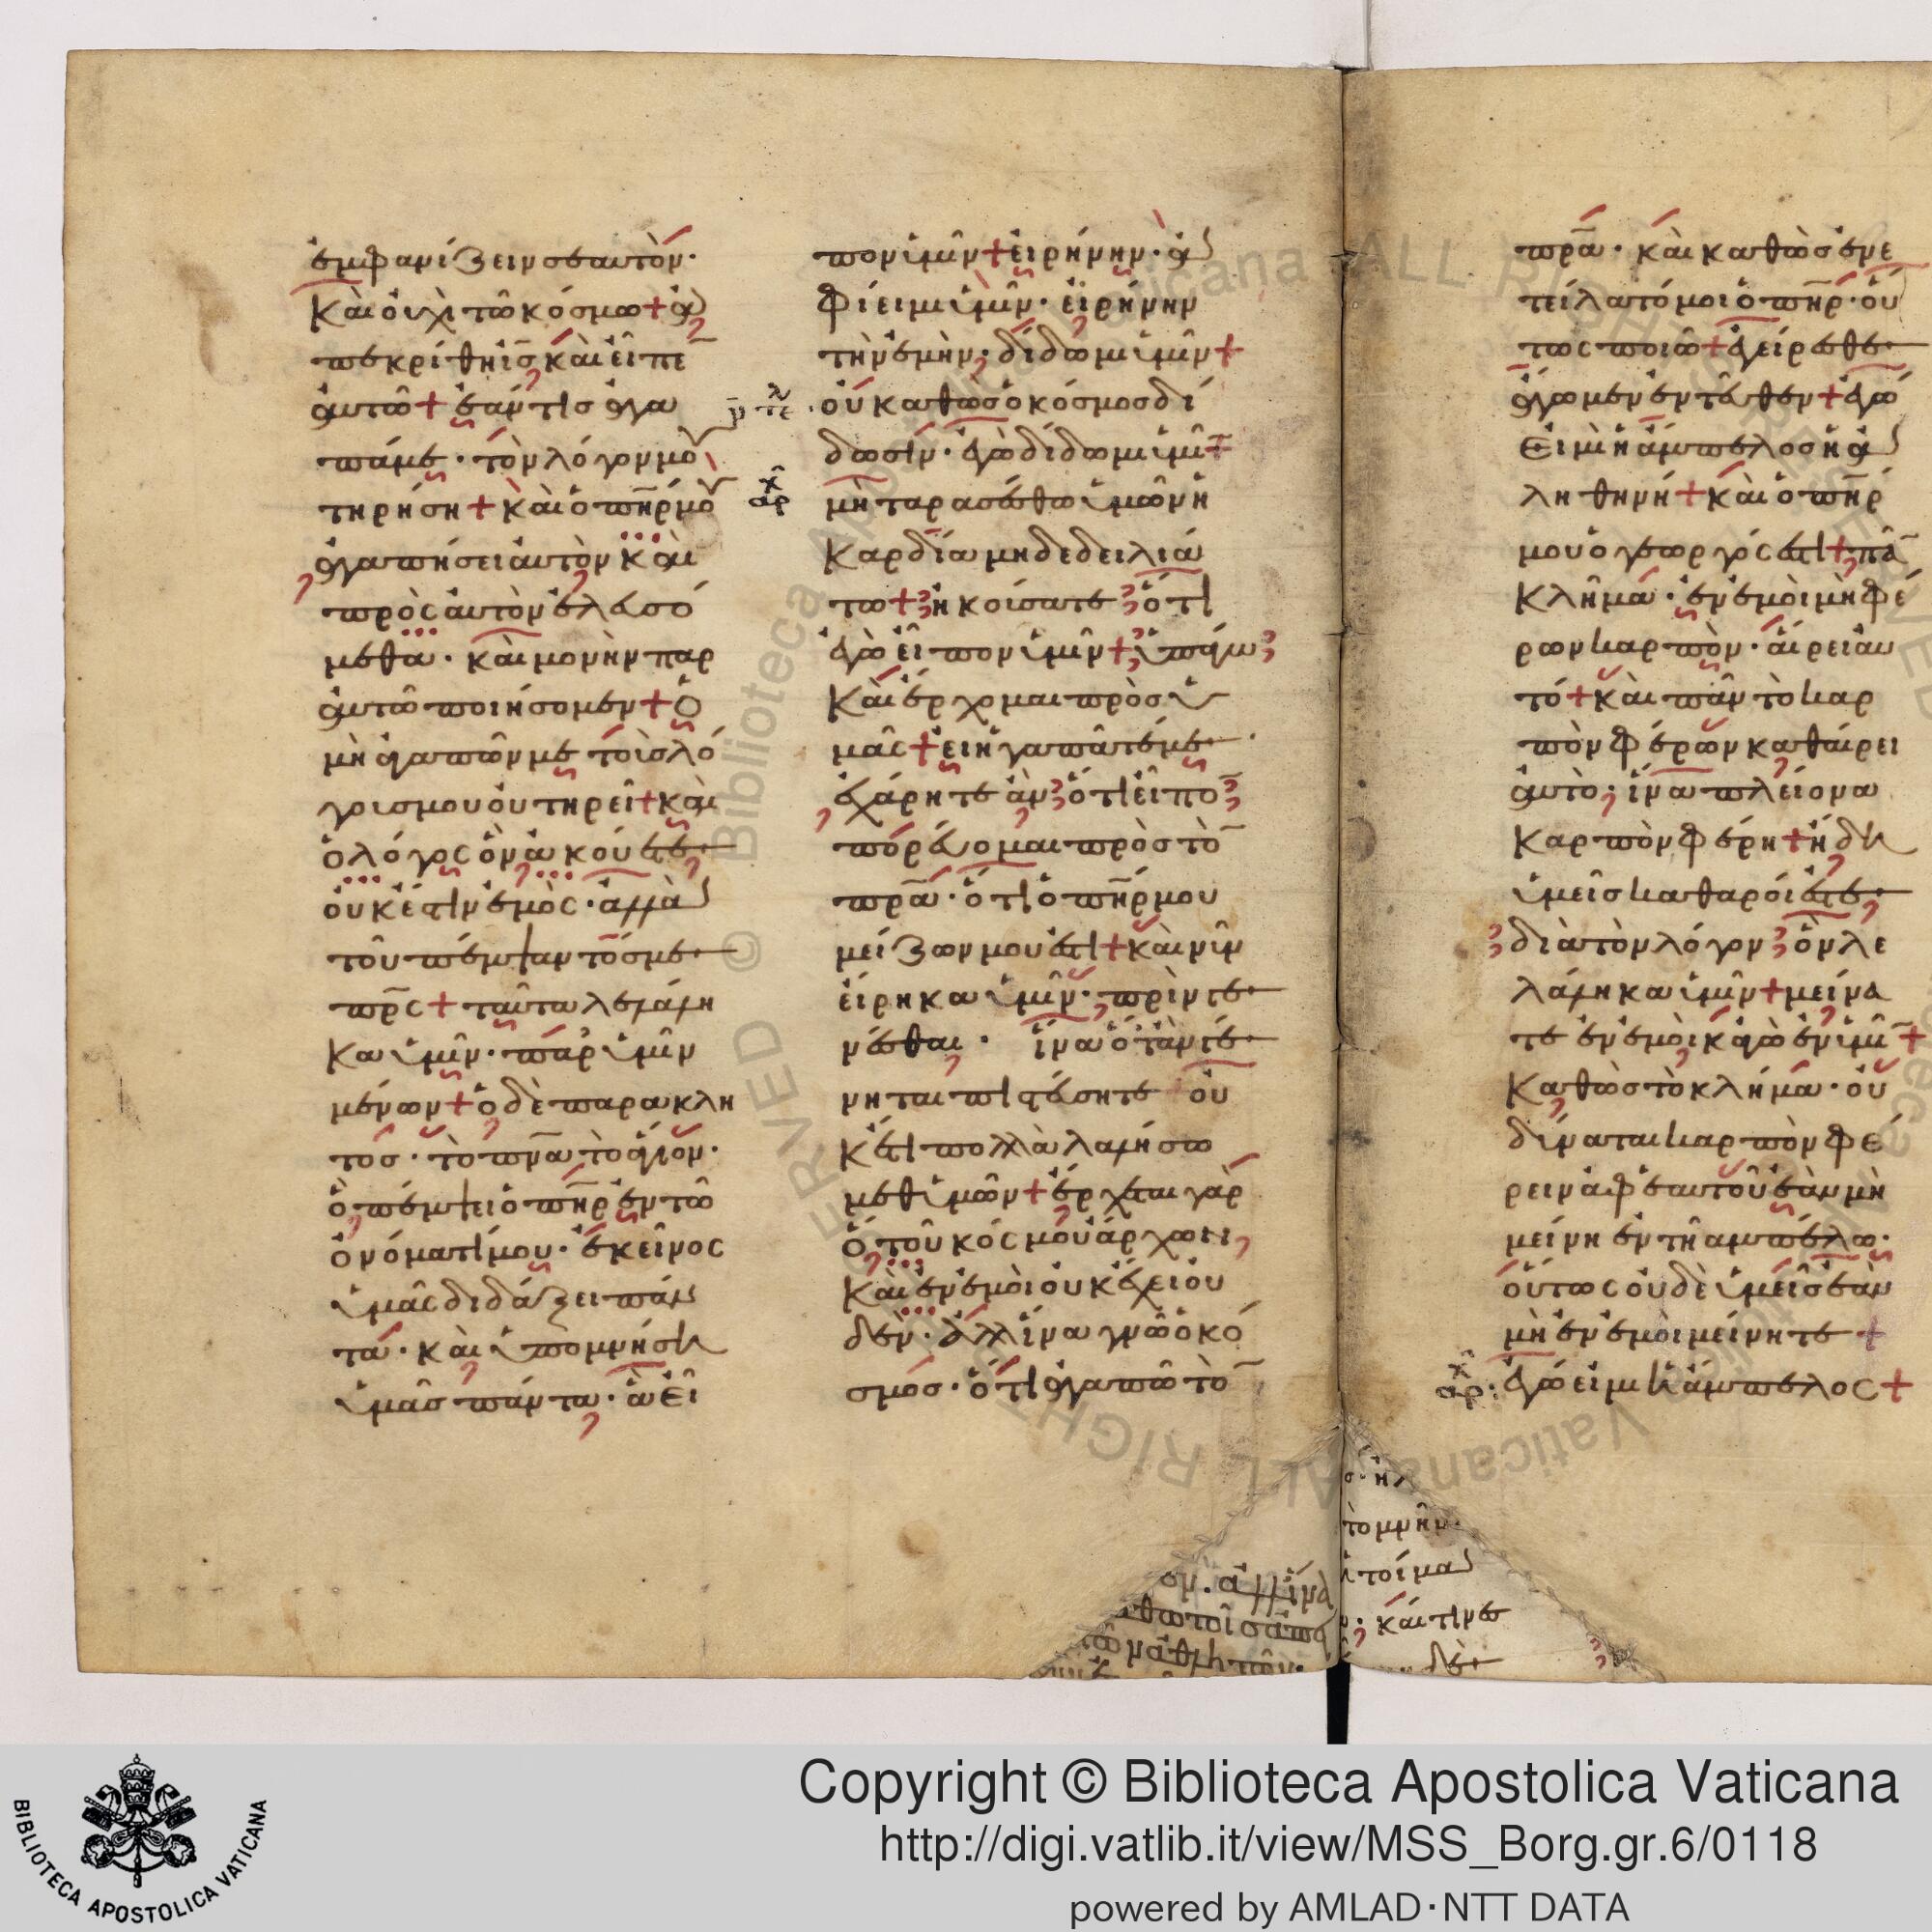 ἐμφανίζειν σεαυτὸν·
Καὶ οὐχὶ τῶ κόσμω + ἀ
πεκρίθη ἰς καὶ εἶπε
αὐτῶ + ἐάν τις ἀγα
πά με· τὸν λόγον μου
τηρήση + καὶ ὁ πηρ μου
ἀγαπήσει αὐτὸν καὶ
πρὸς αὐτὸν ἐλευσό
μεθα· καὶ μονὴν παρ
αὐτῶ ποιήσομεν + ὁ
μὴ ἀγαπῶν με τοὺς λό
γους μου οὐ τηρεῖ + καὶ
ὁ λόγος ὃν ἀκούετε·
οὐκ έστιν ἐμὸς· ἀλλὰ
τοῦ πέμψαντός με
πρς + ταῦτα λελάλη
κα ὑμῖν· παρ ὑμῖν
μένων + ὁ δὲ παράκλη
τος· τὸ πνα τὸ ἅγιον·
ὃ πέμψει ὁ πηρ ἐν τῶ
ὀνόματί μου· ἐκεῖνος
ὑμᾶς διδάξει πάν
τα· καὶ ὑπομνήσει
ὑμᾶς πάντα· ἃ εἶ
πον ὑμῖν + εἰρήνην· ἀ
φίειμι ὑμῖν· εἰρήνην
τὴν ἐμὴν· δίδωμι ὑμῖν +
οὐ καθὼς ὁ κόσμος δί
δωσιν· ἐγὼ δίδωμι ὑμῖ +
μὴ ταρασέσθω ὑμῶν ἡ
καρδία μηδε δειλιά
τω + ἠκούσατε ὅτι
ἐγὼ εἶπον ὑμῖν + ὑπάγω
καὶ έρχομαι πρὸς ὑ
μᾶς + εἰ ἠγαπᾶτέ με·
ἐχάρητε ἂν ὅτι εἶπο
πορεύομαι πρὸς τὸ
πρα· ὅτι ὁ πηρ μου
μείζων μου ἐστι + καὶ νῦν
εἴρηκα ὑμῖν· πρὶν γε
νέσθαι· ἵνα ὅταν γέ
νηται πιστεύσητε οὐ
κέτι πολλὰ λαλήσω
μεθ ὑμῶν + έρχεται γὰρ
ὁ τοῦ κόσμου άρχων
καὶ ἐν ἐμοὶ οὐκ έχει οὐ
δέν· ἀλλ ἵνα γνῶ ὁ κό
σμος· ὅτι ἀγαπῶ τὸ
πρα· καὶ καθὼς ἐνε
τείλατό μοι ὁ πηρ· οὕ
τως ποιῶ + ἐγείρεσθε
άγωμεν ἐντεῦθεν + ἐγώ
εἰμὶ ἡ άμπελος ἡ ἀ
ληθηνή + καὶ ὁ πηρ
μου ὁ γεωργός ἐστι + πᾶ
κλῆμα· ἐν ἐμοὶ μὴ φέ
ρων καρπὸν· αἴρει αὐ
τό + καὶ πᾶν τὸ καρ
πὸν φέρων καθαίρει
αὐτὸ· ἵνα πλείονα
καρπὸν φέρη + ἤδη
ὑμεῖς καθαροί ἐστε·
διὰ τὸν λόγον ὃν λε
λάληκα ὑμῖν + μείνα
τε ἐν ἐμοὶ κἀγὼ ἐν ὑμῖ +
καθὼς τὸ κλήμα· οὐ
δύναται καρπὸν φέ
ρειν ἀφ ἑαυτοῦ ἐὰν μὴ
μείνη ἐν τῆ αμπέλω·
οὕτως οὐδὲ ὑμεῖς ἐὰν
μὴ ἐν ἐμοὶ μείνητε +
ἐγώ εἰμι ἡ άμπελος +
ον. ἀλλ ἵνα
τομμην
ἑτοίμα
καί τινε
Copyright © Biblioteca Apostolica Vaticana
http://digi.vatlib.it/view/MSS_Borg.gr.6/0118
powered by AMLAD·NTT DATA
BIBLIOTECA APOSTOLICA VATICANA